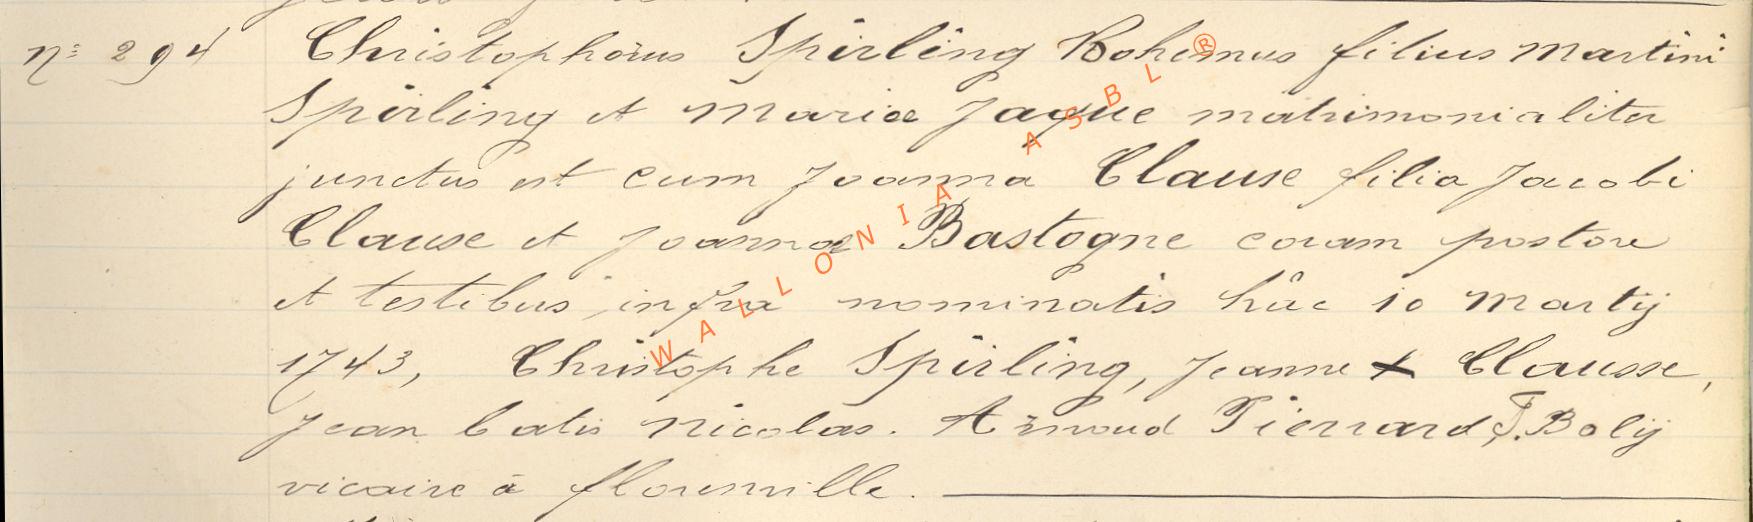 n: 294 Christophorus Spirling Bohemus filius Martini
Spirling et Mariæ Jaque matrimonialiter
junctus est cum Joanna Clause filia Jacobi
Clause et Joannæ Bastogne coram pastore
et testibus infra nominatis hâc 10 Martij
1743, Christophe Spirling, Jeanne + Clausse,
Jean batis Nicolas. Arnoud Pierrard, J. Boly
vicaire à florenville.
WALLONIA ASBL ®